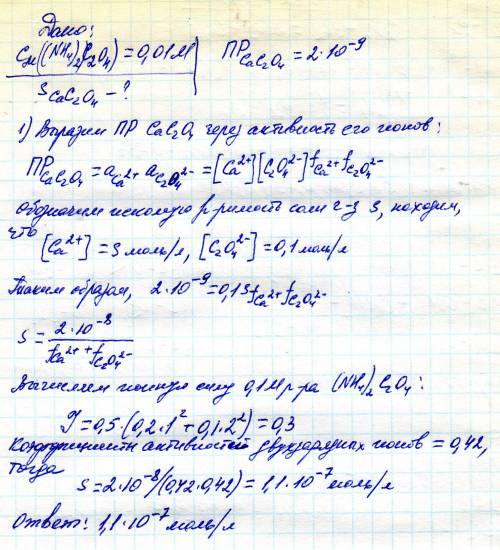 Дано:
Cм((NH₄)₂C₂O₄) = 0,01М
ПР CaC₂O₄ = 2·10⁻⁹
S CaC₂O₄ - ?
1) Выразим ПР CaC₂O₄ через активность его ионов:
ПР CaC₂O₄ = a Ca²⁺ a C₂O₄²⁻ = [Ca²⁺][C₂O₄²⁻] f Ca²⁺ f C₂O₄²⁻
обозначим искомую р-римость соли ч-з S, находим,
что
[Ca²⁺] = S моль/л, [C₂O₄²⁻] = 0,1 моль/л
Таким образом, 2·10⁻⁹ = 0,1S f Ca²⁺ f C₂O₄²⁻
S = 2·10⁻⁸ / f Ca²⁺ + f C₂O₄²⁻
Вычисляем ионную силу 0,1М р-ра (NH₄)₂C₂O₄:
J = 0,5·(0,2·1² + 0,1·2²) = 0,3
Коэффициенты активностей двухзарядных ионов = 0,42,
тогда
S = 2·10⁻⁸/(0,42·0,42) = 1,1·10⁻⁷ моль/л
Ответ: 1,1·10⁻⁷ моль/л